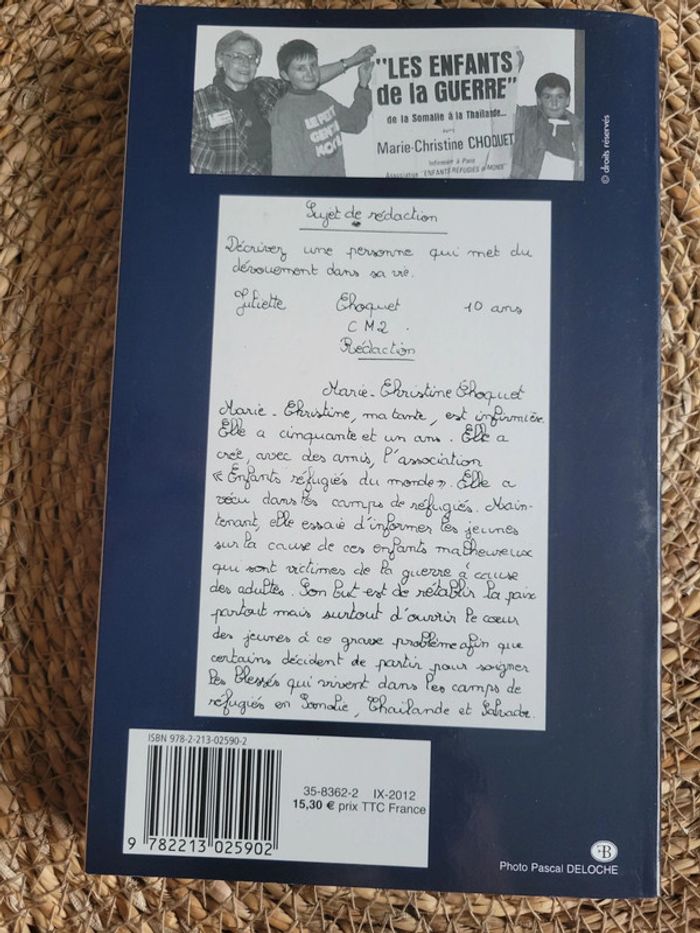 "LES ENFANTS
de la GUERRE"
de la Somalie à la Thaïlande...
Marie-Christine CHOQUET
Infirmière à Paris
Association "ENFANTS RÉFUGIÉS du MONDE"
© droits réservés
Sujet de rédaction
Décrivez une personne qui met du
dévouement dans sa vie.
Juliette Choquet 10 ans
CM2.
Rédaction
Marie-Christine Choquet
Marie-Christine, ma tante, est infirmière.
Elle a cinquante et un ans. Elle a
créé, avec des amis, l'association
« Enfants réfugiés du monde ». Elle a
vécu dans les camps de réfugiés. Main-
tenant, elle essaie d'informer les jeunes
sur la cause de ces enfants malheureux
qui sont victimes de la guerre à cause
des adultes. Son but est de rétablir la paix
partout mais surtout d'ouvrir le cœur
des jeunes à ce grave problème afin que
certains décident de partir pour soigner
les blessés qui vivent dans les camps de
réfugiés en Somalie, Thaïlande et Salvador.
ISBN 978-2-213-02590-2
35-8362-2 IX-2012
15,30 € prix TTC France
9 782213 025902
Photo Pascal DELOCHE